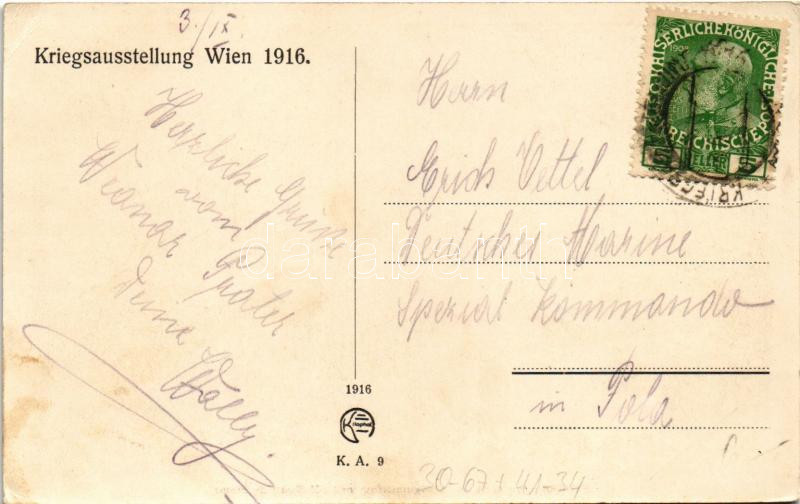 3./IX.
Kriegsausstellung Wien 1916.
Herzliche Grüsse
vom
Wiener Prater
Deine
Wally.
K. K. ÖSTERREICHISCHE POST
KAISERLICHEKÖNIGLICHE
1908
5 HELLER 5
KRIEGS
Herrn
Erich Vettel
Deutsches Marine
Spezial Kommando
in Pola
1916
K. A. 9
30-67+41-34
darabanth